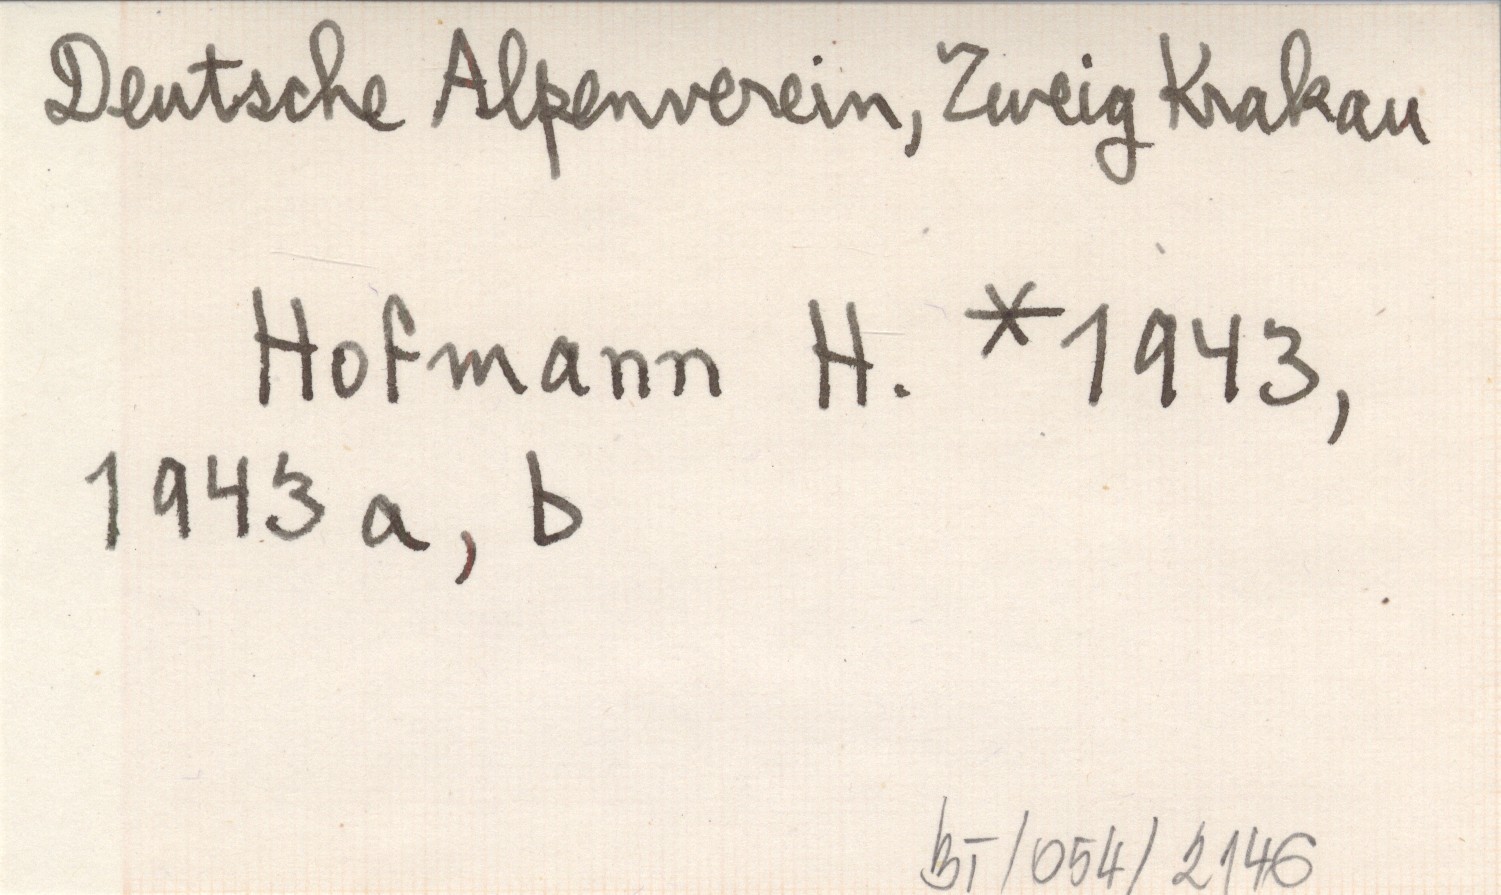 Deutsche Alpenverein, Zweig Krakau
Hofmann H. *1943,
1943 a, b
BT/054/2146